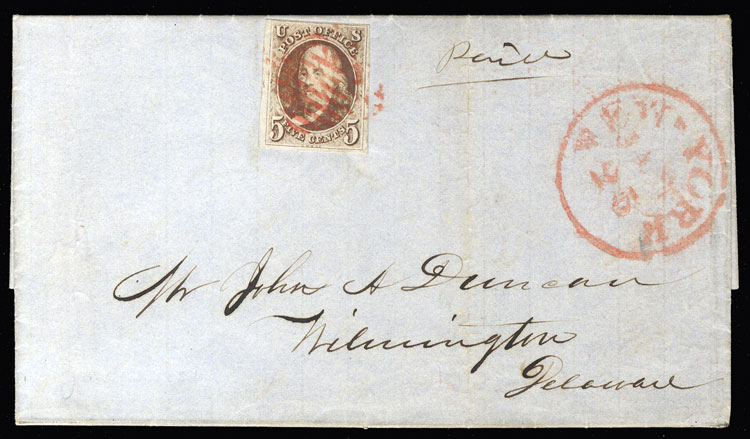 U S
POST OFFICE
5 FIVE CENTS 5
Paid
NEW-YORK
Mr John A Duncan
Wilmington
Delaware